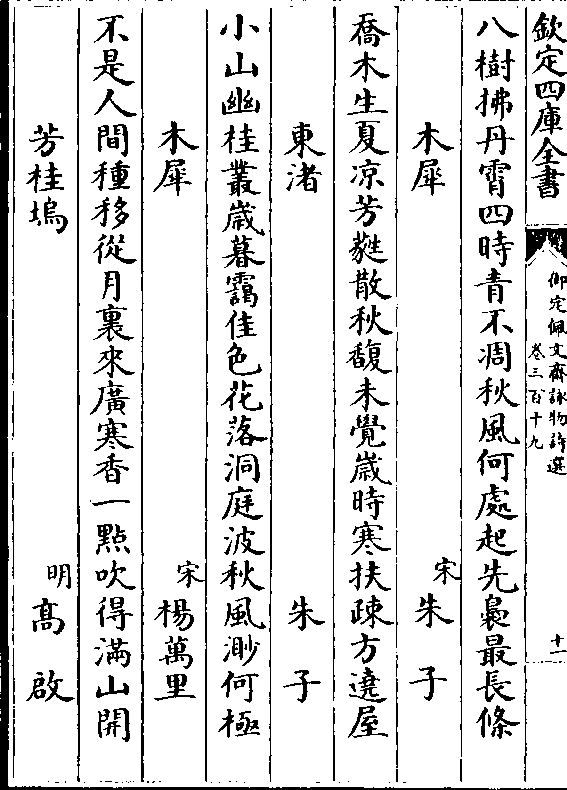 欽定四庫全書
御定佩文齋詠物詩選
卷三百十九
十一
八樹拂丹霄四時青不凋秋風何處起先裊最長條
木犀 宋朱子
喬木生夏凉芳蕤散秋馥未覺歲時寒扶疎方遶屋
東渚 朱子
小山幽桂叢歲暮靄佳色花落洞庭波秋風渺何極
木犀 宋楊萬里
不是人間種移從月裏來廣寒香一點吹得滿山開
芳桂塢 明高啟